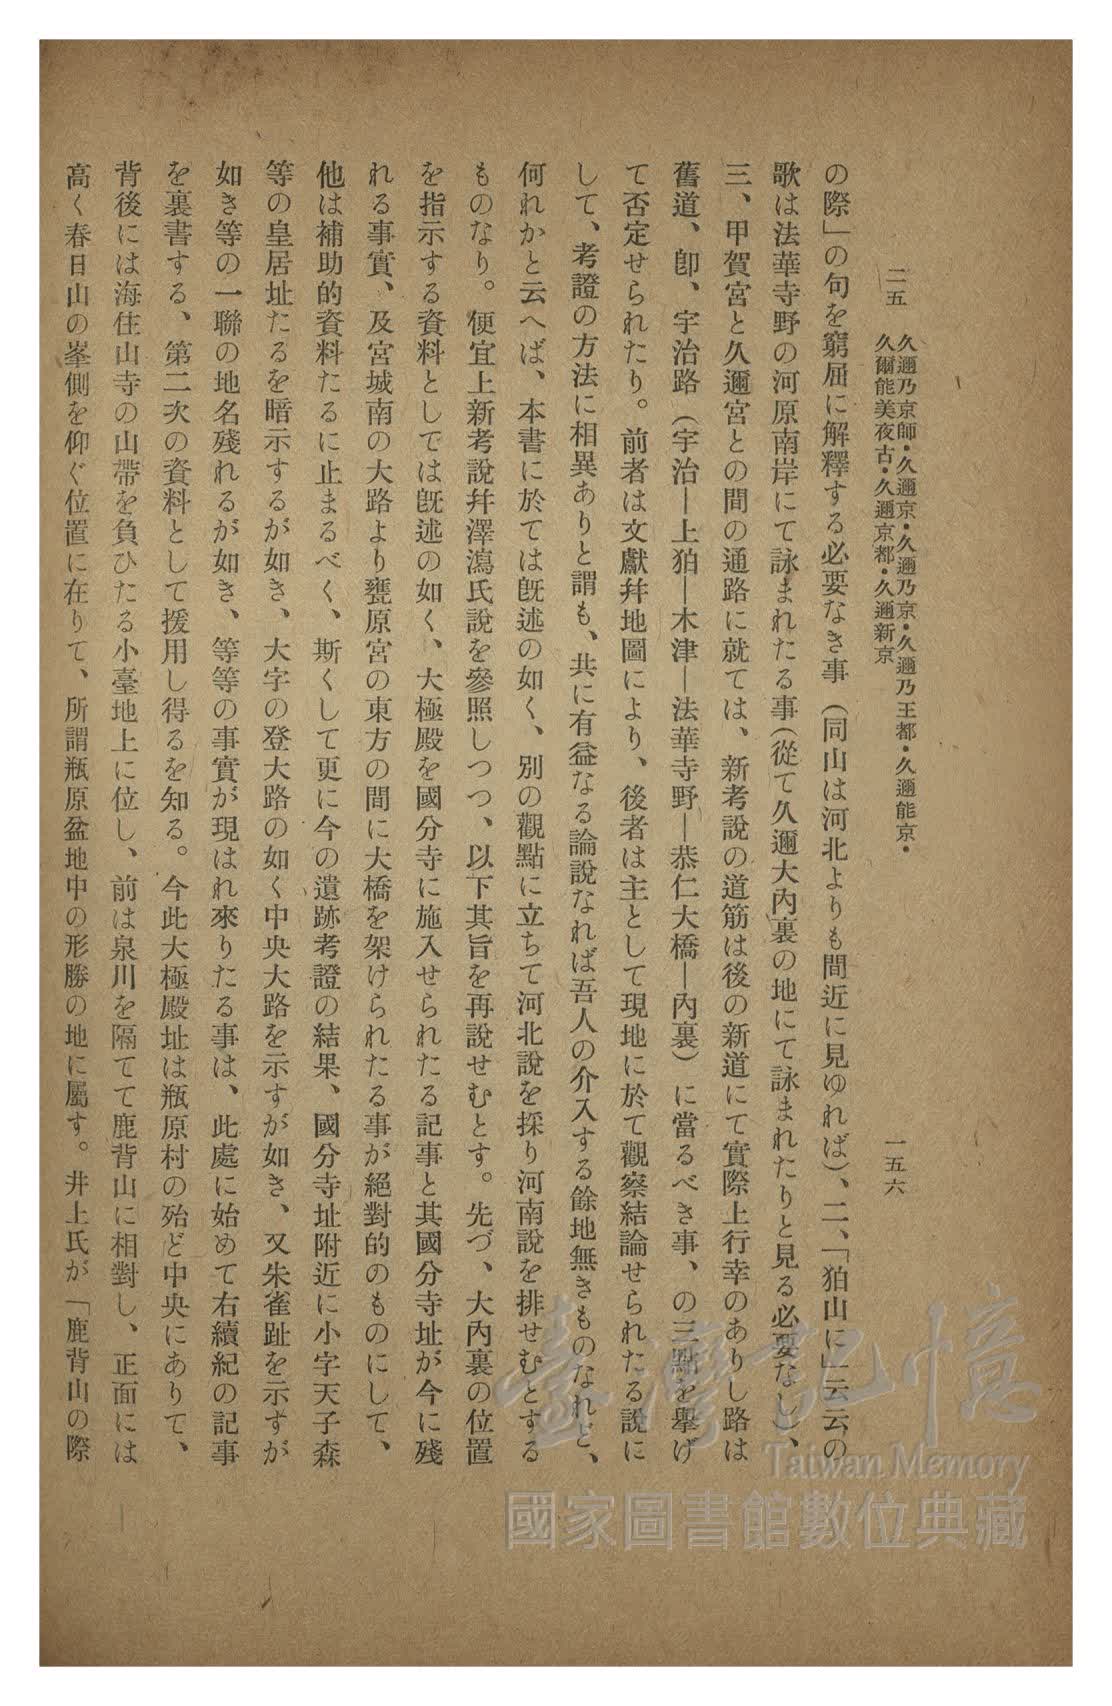 二五　久邇乃京師・久邇京・久邇乃京・久邇乃王都・久邇能京・
久爾能美夜古・久邇京都・久邇新京
一五六
の際」の句を窮屈に解釋する必要なき事（同山は河北よりも間近に見ゆれば）、二、「狛山に」云云の
歌は法華寺野の河原南岸にて詠まれたる事（從て久邇大內裏の地にて詠まれたりと見る必要なし）、
三、甲賀宮と久邇宮との間の通路に就ては、新考說の道筋は後の新道にて實際上行幸のありし路は
舊道、卽、宇治路（宇治—上狛—木津—法華寺野—恭仁大橋—內裏）に當るべき事、の三點を擧げ
て否定せられたり。前者は文獻幷地圖により、後者は主として現地に於て觀察結論せられたる說に
して、考證の方法に相異ありと謂も、共に有益なる論說なれば吾人の介入する餘地無きものなれど、
何れかと云へば、本書に於ては旣述の如く、別の觀點に立ちて河北說を採り河南說を排せむとする
ものなり。便宜上新考說幷澤瀉氏說を參照しつつ、以下其旨を再說せむとす。先づ、大內裏の位置
を指示する資料としては旣述の如く、大極殿を國分寺に施入せられたる記事と其國分寺址が今に殘
れる事實、及宮城南の大路より甕原宮の東方の間に大橋を架けられたる事が絕對的のものにして、
他は補助的資料たるに止まるべく、斯くして更に今の遺跡考證の結果、國分寺址附近に小字天子森
等の皇居址たるを暗示するが如き、大字の登大路の如く中央大路を示すが如き、又朱雀趾を示すが
如き等の一聯の地名殘れるが如き、等等の事實が現はれ來りたる事は、此處に始めて右續紀の記事
を裏書する、第二次の資料として援用し得るを知る。今此大極殿址は瓶原村の殆ど中央にありて、
背後には海住山寺の山帶を負ひたる小臺地上に位し、前は泉川を隔てて鹿背山に相對し、正面には
高く春日山の峯側を仰ぐ位置に在りて、所謂瓶原盆地中の形勝の地に屬す。井上氏が「鹿背山の際
臺灣記憶
Taiwan Memory
國家圖書館數位典藏